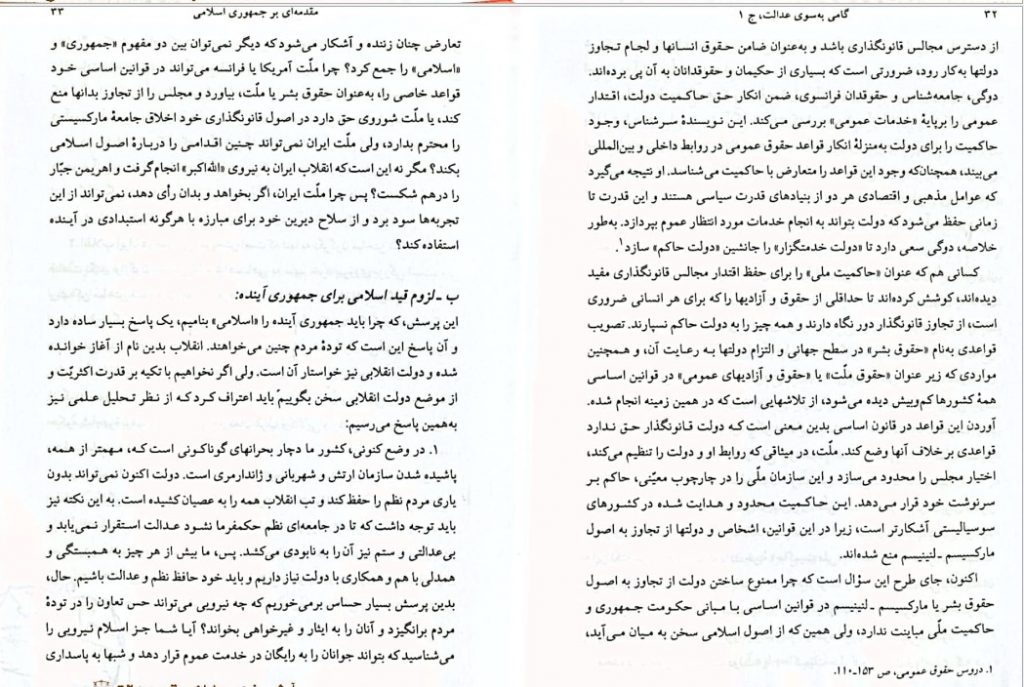 ۳۲
گامی به‌سوی عدالت، ج ۱
از دسترس مجالس قانونگذاری باشد و به‌عنوان ضامن حقوق انسانها و لجام تجاوز
دولتها به‌کار رود، ضرورتی است که بسیاری از حکیمان و حقوقدانان به آن پی برده‌اند.
دوگی، جامعه‌شناس و حقوقدان فرانسوی، ضمن انکار حق حاکمیت دولت، اقتدار
عمومی را برپایهٔ «خدمات عمومی» بررسی می‌کند. این نویسندهٔ سرشناس، وجود
حاکمیت را برای دولت به‌منزلهٔ انکار قواعد حقوق عمومی در روابط داخلی و بین‌المللی
می‌بیند، همچنان‌که وجود این قواعد را متعارض با حاکمیت می‌شناسد. او نتیجه می‌گیرد
که عوامل مذهبی و اقتصادی هر دو از بنیادهای قدرت سیاسی هستند و این قدرت تا
زمانی حفظ می‌شود که دولت بتواند به انجام خدمات مورد انتظار عموم بپردازد. به‌طور
خلاصه، دوگی سعی دارد تا «دولت خدمتگزار» را جانشین «دولت حاکم» سازد.۱
کسانی هم که عنوان «حاکمیت ملی» را برای حفظ اقتدار مجالس قانونگذاری مفید
دیده‌اند، کوشش کرده‌اند تا حداقلی از حقوق و آزادیها را که برای هر انسانی ضروری
است، از تجاوز قانونگذار دور نگاه دارند و همه چیز را به دولت حاکم نسپارند. تصویب
قواعدی به‌نام «حقوق بشر» در سطح جهانی و الزام دولتها به رعایت آن، و همچنین
مواردی که زیر عنوان «حقوق ملّت» یا «حقوق و آزادیهای عمومی» در قوانین اساسی
همهٔ کشورها کم‌وبیش دیده می‌شود، از تلاشهایی است که در همین زمینه انجام شده.
آوردن این قواعد در قانون اساسی بدین معنی است که دولت قانونگذار حق ندارد
قواعدی بر خلاف آنها وضع کند. ملّت، در میثاقی که روابط او و دولت را تنظیم می‌کند،
اختیار مجلس را محدود می‌سازد و این سازمان ملّی را در چارچوب معیّنی، حاکم بر
سرنوشت خود قرار می‌دهد. این حاکمیت محدود و هدایت شده در کشورهای
سوسیالیستی آشکارتر است، زیرا در این قوانین، اشخاص و دولتها از تجاوز به اصول
مارکسیسم ـ لنینیسم منع شده‌اند.
اکنون، جای طرح این سؤال است که چرا ممنوع ساختن دولت از تجاوز به اصول
حقوق بشر یا مارکسیسم ـ لنینیسم در قوانین اساسی با مبانی حکومت جمهوری و
حاکمیت ملّی مباینت ندارد، ولی همین‌که از اصول اسلامی سخن به میان می‌آید،
۱. دروس حقوق عمومی، ص ۱۵۳ـ۱۱۰.
مقدمه‌ای بر جمهوری اسلامی
۳۳
تعارض چنان زننده و آشکار می‌شود که دیگر نمی‌توان بین دو مفهوم «جمهوری» و
«اسلامی» را جمع کرد؟ چرا ملّت آمریکا یا فرانسه می‌تواند در قوانین اساسی خود
قواعد خاصی را، به‌عنوان حقوق بشر یا ملّت، بیاورد و مجلس را از تجاوز بدانها منع
کند، یا ملّت شوروی حق دارد در اصول قانونگذاری خود اخلاق جامعهٔ مارکسیستی
را محترم بدارد، ولی ملّت ایران نمی‌تواند چنین اقدامی را دربارهٔ اصول اسلامی
بکند؟ مگر نه این است که انقلاب ایران به نیروی «الله‌اکبر» انجام گرفت و اهریمن جبّار
را درهم شکست؟ پس چرا ملّت ایران، اگر بخواهد و بدان رأی دهد، نمی‌تواند از این
تجربه‌ها سود برد و از سلاح دیرین خود برای مبارزه با هرگونه استبدادی در آینده
استفاده کند؟
ب ـ لزوم قید اسلامی برای جمهوری آینده:
این پرسش، که چرا باید جمهوری آینده را «اسلامی» بنامیم، یک پاسخ بسیار ساده دارد
و آن پاسخ این است که تودهٔ مردم چنین می‌خواهند. انقلاب بدین نام از آغاز خوانده
شده و دولت انقلابی نیز خواستار آن است. ولی اگر نخواهیم با تکیه بر قدرت اکثریّت و
از موضع دولت انقلابی سخن بگوییم باید اعتراف کرد که از نظر تحلیل علمی نیز
به‌همین پاسخ می‌رسیم:
۱. در وضع کنونی، کشور ما دچار بحرانهای گوناگونی است که، مهمتر از همه،
پاشیده شدن سازمان ارتش و شهربانی و ژاندارمری است. دولت اکنون نمی‌تواند بدون
یاری مردم نظم را حفظ کند و تب انقلاب همه را به عصیان کشیده است. به این نکته نیز
باید توجه داشت که تا در جامعه‌ای نظم حکمفرما نشود عدالت استقرار نمی‌یابد و
بی‌عدالتی و ستم نیز آن را به نابودی می‌کشد. پس، ما بیش از هر چیز به همبستگی و
همدلی با هم و همکاری با دولت نیاز داریم و باید خود حافظ نظم و عدالت باشیم. حال،
بدین پرسش بسیار حساس برمی‌خوریم که چه نیرویی می‌تواند حس تعاون را در تودهٔ
مردم برانگیزد و آنان را به ایثار و غیرخواهی بخواند؟ آیا شما جز اسلام نیرویی را
می‌شناسید که بتواند جوانان را به رایگان در خدمت عموم قرار دهد و شبها به پاسداری